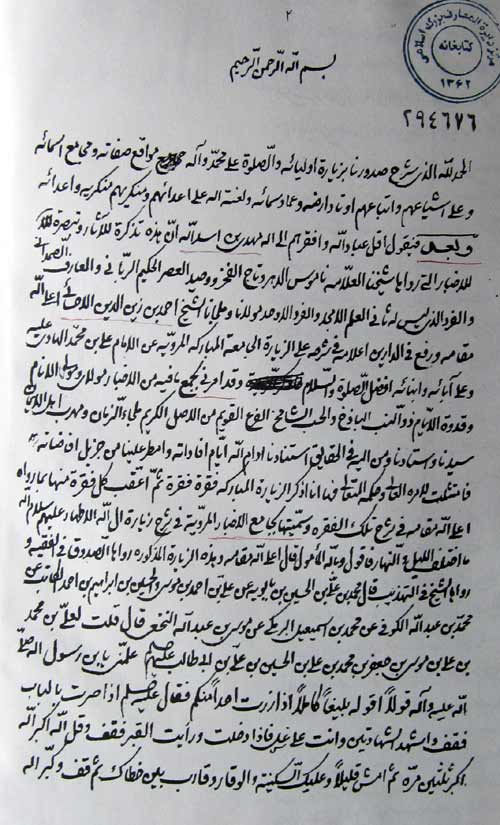 ٢
مركز دائرة المعارف بزرگ اسلامى
كتابخانه
١٣٦٢
٢٩٤٦٧٦
بسم الله الرحمن الرحيم
الحمد لله الذى شرح صدورنا بزيارة اوليائه والصلوة على محمد وآله مواقع صفاته ومجامع اسمائه
وعلى اشياعهم واتباعهم اوتاد ارضه وعماد سمائه ولعنة الله على اعدائهم ومنكريهم واعدائه
وبعد فيقول اقل عباد الله وافقرهم الى الله مهدى بن اسد الله ان هذه تذكرة للآثار وتبصرة
للاخبار التى رواها شيخنا العلامه ناموس الدهر وتاج الفخر ووحيد العصر الحكيم الربانى والعارف الصمدانى
والفرد الذى ليس له ثانى العلم الامجد والفرد الاوحد مولانا وملاذنا الشيخ احمد بن زين الدين الاحسائى اعلى الله
مقامه ورفع فى الدارين اعلامه فى شرحه على الزيارة الجامعة المباركه المروية عن الامام على بن محمد الهادى عليه
وعلى آبائه وابنائه افضل الصلوة والسلام وقد امرنى بجمع ما فيه من الاخبار مولاى ومولى الانام
وقدوة الانام ذو النسب الباذخ والحسب الشامخ الفرع القويم من الاصل الكريم علماء الزمان ومهرب اهل الايمان
سيدنا وسنادنا ومن اليه فى الحقايق استنادنا ادام الله ايام افاداته وامطر علينا من جزيل افضاته
فامتثلت لامره العالى وحكمه المتعالى فها انا اذكر الزيارة المباركه فقرة فقرة ثم اعقب كل فقرة منها بما رواه
اعلى الله مقامه فى شرح تلك الفقره وسميتها بجامع الاخبار المروية فى شرح زيارة آل الله الاطهار عليهم سلام الله
ما اختلف الليل والنهار فاقول وبالله المأمول قال اعلى الله مقامه وهذه الزيارة المذكوره رواها الصدوق فى الفقيه و
رواها الشيخ فى التهذيب قال محمد بن على بن الحسين بن بابويه عن على بن احمد بن موسى والحسين بن ابراهيم بن احمد الكاتب عن
محمد بن عبد الله الكوفى عن محمد بن اسمعيل البرمكى عن موسى بن عبد الله النخعى قال قلت لعلى بن محمد
بن على بن موسى بن جعفر بن محمد بن على بن الحسين بن على بن ابى طالب عليهم السلام علمنى يا بن رسول الله صلى
الله عليه وآله قولاً اقوله بليغاً كاملاً اذا زرت احداً منكم فقال عليه السلام اذا صرت بالباب
فقف واشهد الشهادتين وانت على غسل فاذا دخلت ورأيت القبر فقف وقل الله اكبر الله
اكبر ثلثين مرة ثم امش قليلاً وعليك السكينة والوقار وقارب بين خطاك ثم قف وكبر الله